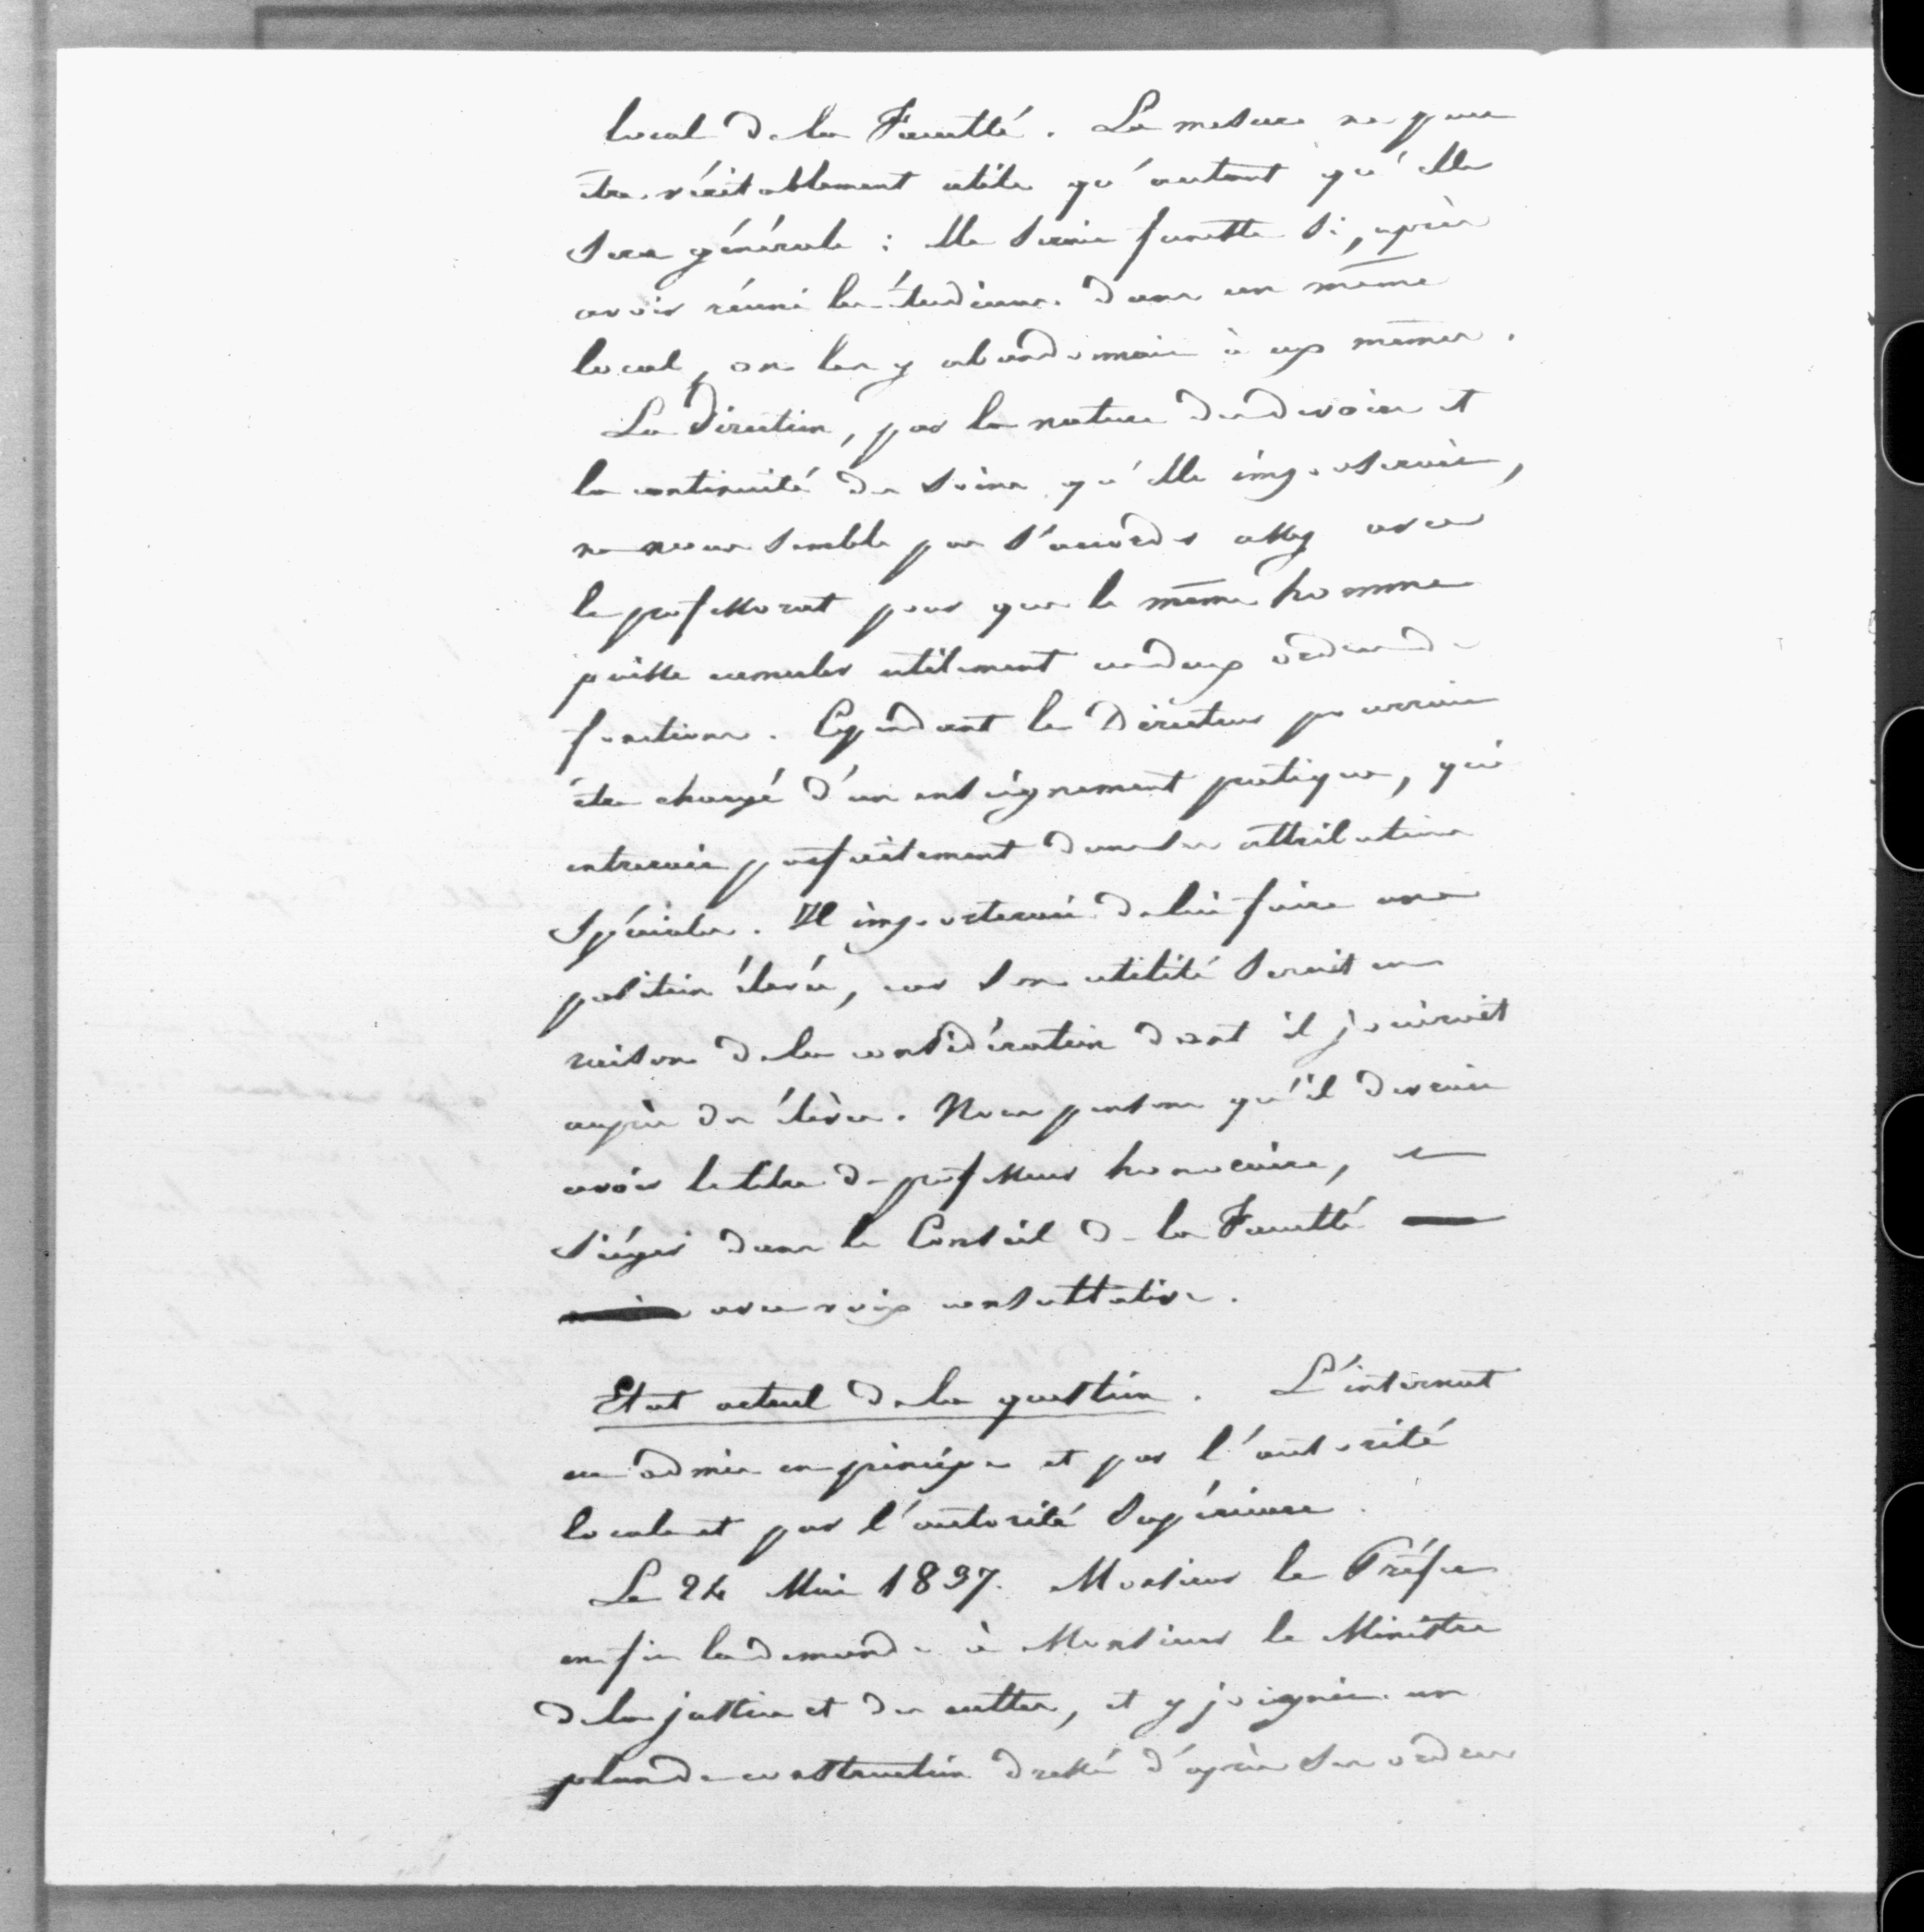 local de la Faculté. La mesure ne peut
être véritablement utile qu'autant qu'elle
sera générale : elle serait funeste si, après
avoir réuni les étudians dans un même
local, on les y abandonnait à eux mêmes.
La direction, par la nature des devoirs et
la continuité des soins qu'elle imposerait,
ne nous semble pas s'accorder assez avec
le professorat pour que le même homme
puisse cumuler utilement ces deux ordres de
fonctions. Cependant le Directeur pourrait
être chargé d'un enseignement pratique, qui
entrerait parfaitement dans ses attributions
spéciales. Il importerait de lui faire une
position élevée, car son utilité serait en
raison de la considération dont il jouirait
auprès des élèves. Nous pensons qu'il devrait
avoir le titre de professeur honoraire, et
siéger dans le Conseil de la Faculté
avec voix consultative.
Etat actuel de la question. L'internat
est admis en principe et par l'autorité
locale et par l'autorité supérieure.
Le 24 Mai 1837. Monsieur le Préfet
en fit la demande à Monsieur le Ministre
de la justice et des cultes, et y joignit un
plan de construction dressé d'après ses ordres